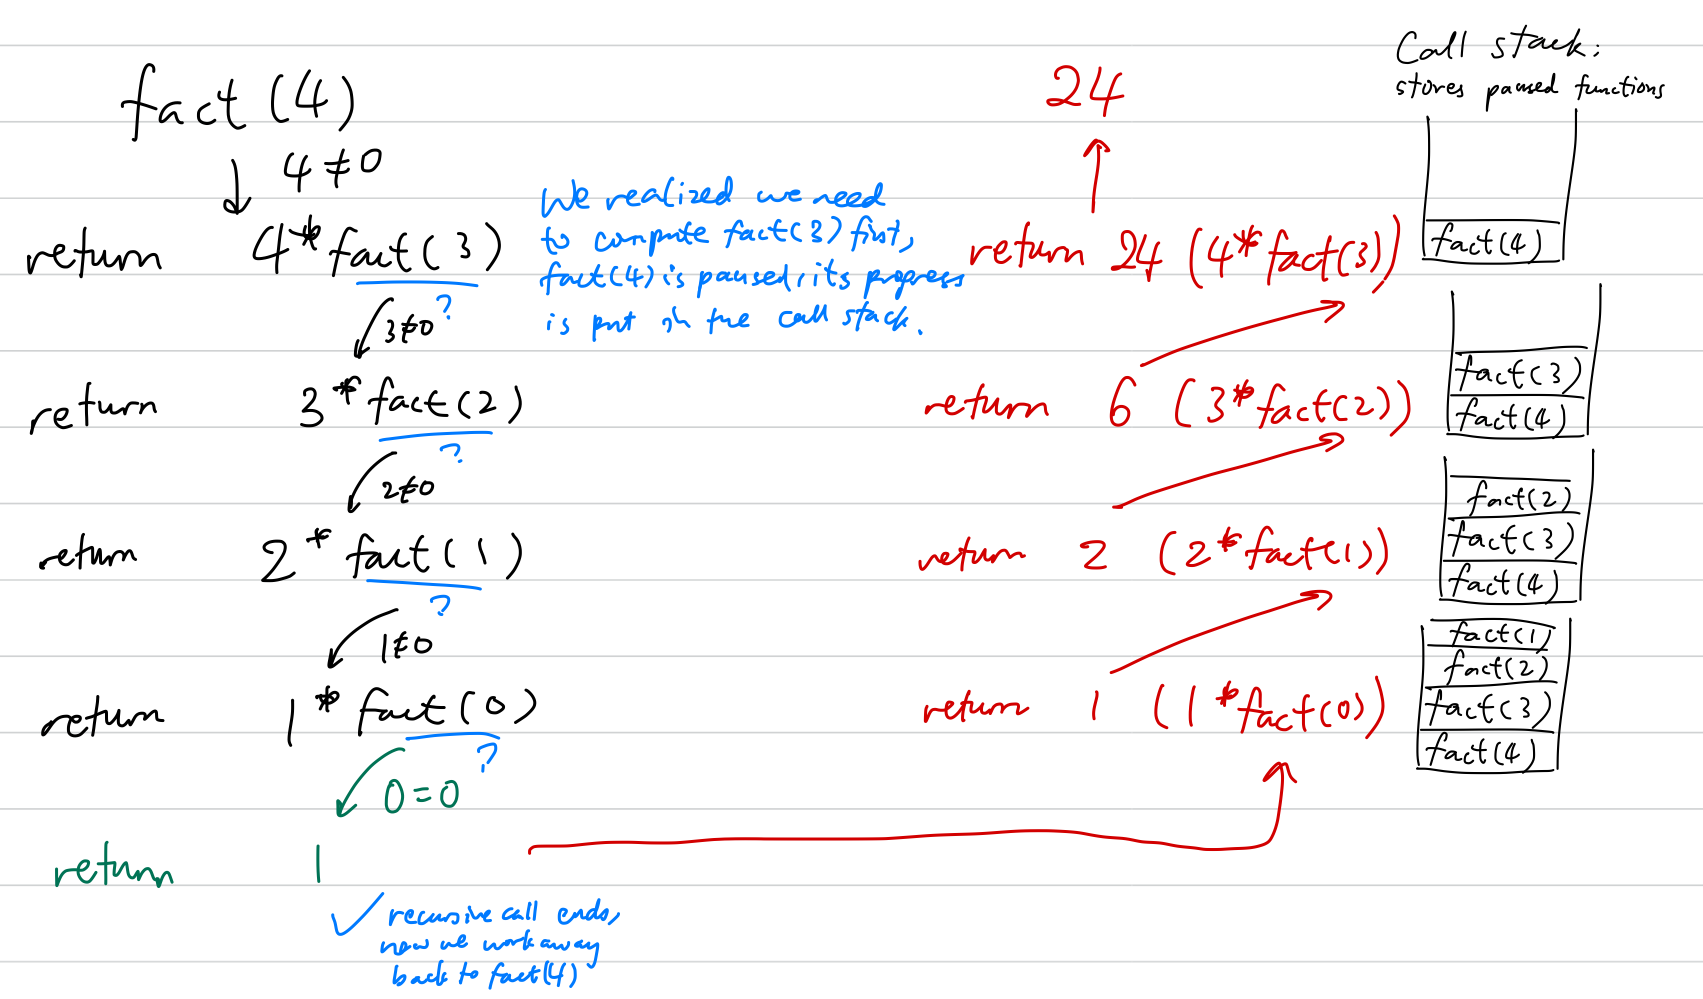 fact(4)
4≠0
return 4*fact(3)
?
3≠0
return 3*fact(2)
?
2≠0
return 2*fact(1)
?
1≠0
return 1*fact(0)
?
0=0
return 1
✓ recursive call ends,
now we work away
back to fact(4)
We realized we need
to compute fact(3) first,
fact(4) is paused, its progress
is put in the call stack.
24
return 24 (4*fact(3))
return 6 (3*fact(2))
return 2 (2*fact(1))
return 1 (1*fact(0))
Call stack:
stores paused functions
fact(4)
fact(3)
fact(4)
fact(2)
fact(3)
fact(4)
fact(1)
fact(2)
fact(3)
fact(4)